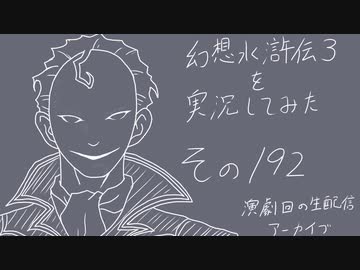 幻想水滸伝3
を
実況してみた
その192
演劇回の生配信
アーカイブ